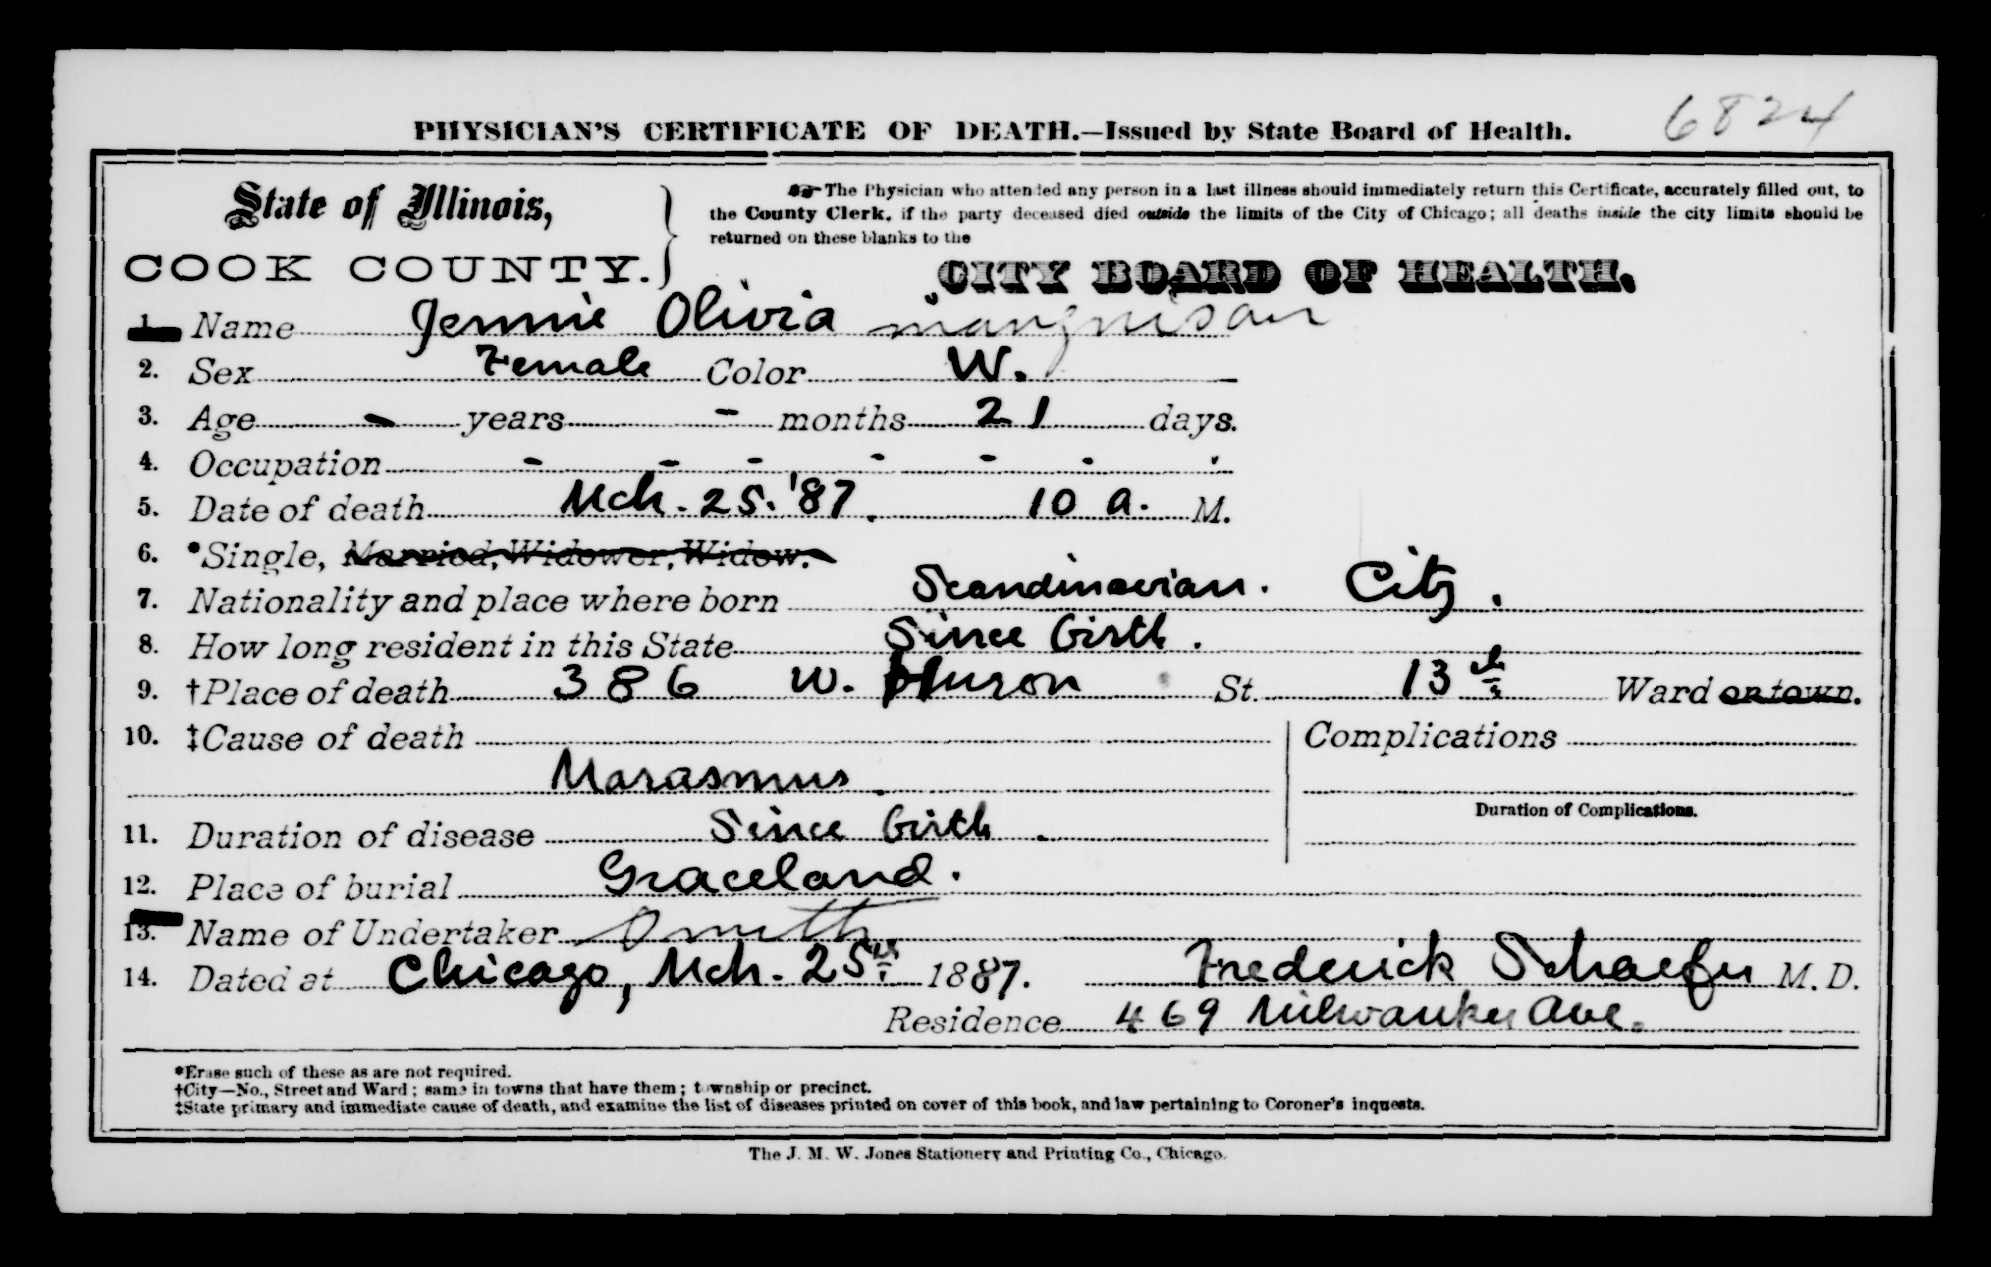 6824
PHYSICIAN'S CERTIFICATE OF DEATH.—Issued by State Board of Health.
State of Illinois,
COOK COUNTY.
The Physician who attended any person in a last illness should immediately return this Certificate, accurately filled out, to
the County Clerk, if the party deceased died outside the limits of the City of Chicago; all deaths inside the city limits should be
returned on these blanks to the
CITY BOARD OF HEALTH.
1. Name Jennie Olivia
2. Sex Female Color W.
3. Age - years - months 21 days.
4. Occupation - - - - - - -
5. Date of death Mch. 25. '87. 10 a. M.
6. *Single, Married, Widower, Widow.
7. Nationality and place where born Scandinavian. City.
8. How long resident in this State Since birth.
9. †Place of death 386 W. Huron St. 13th Ward or town.
10. ‡Cause of death Complications
Marasmus.
Duration of Complications.
11. Duration of disease Since birth.
12. Place of burial Graceland.
13. Name of Undertaker Smith
14. Dated at Chicago, Mch. 25th 1887. Frederick Schaefer M. D.
Residence 469 Milwaukee Ave.
*Erase such of these as are not required.
†City—No., Street and Ward; same in towns that have them; township or precinct.
‡State primary and immediate cause of death, and examine the list of diseases printed on cover of this book, and law pertaining to Coroner's inquests.
The J. M. W. Jones Stationery and Printing Co., Chicago.